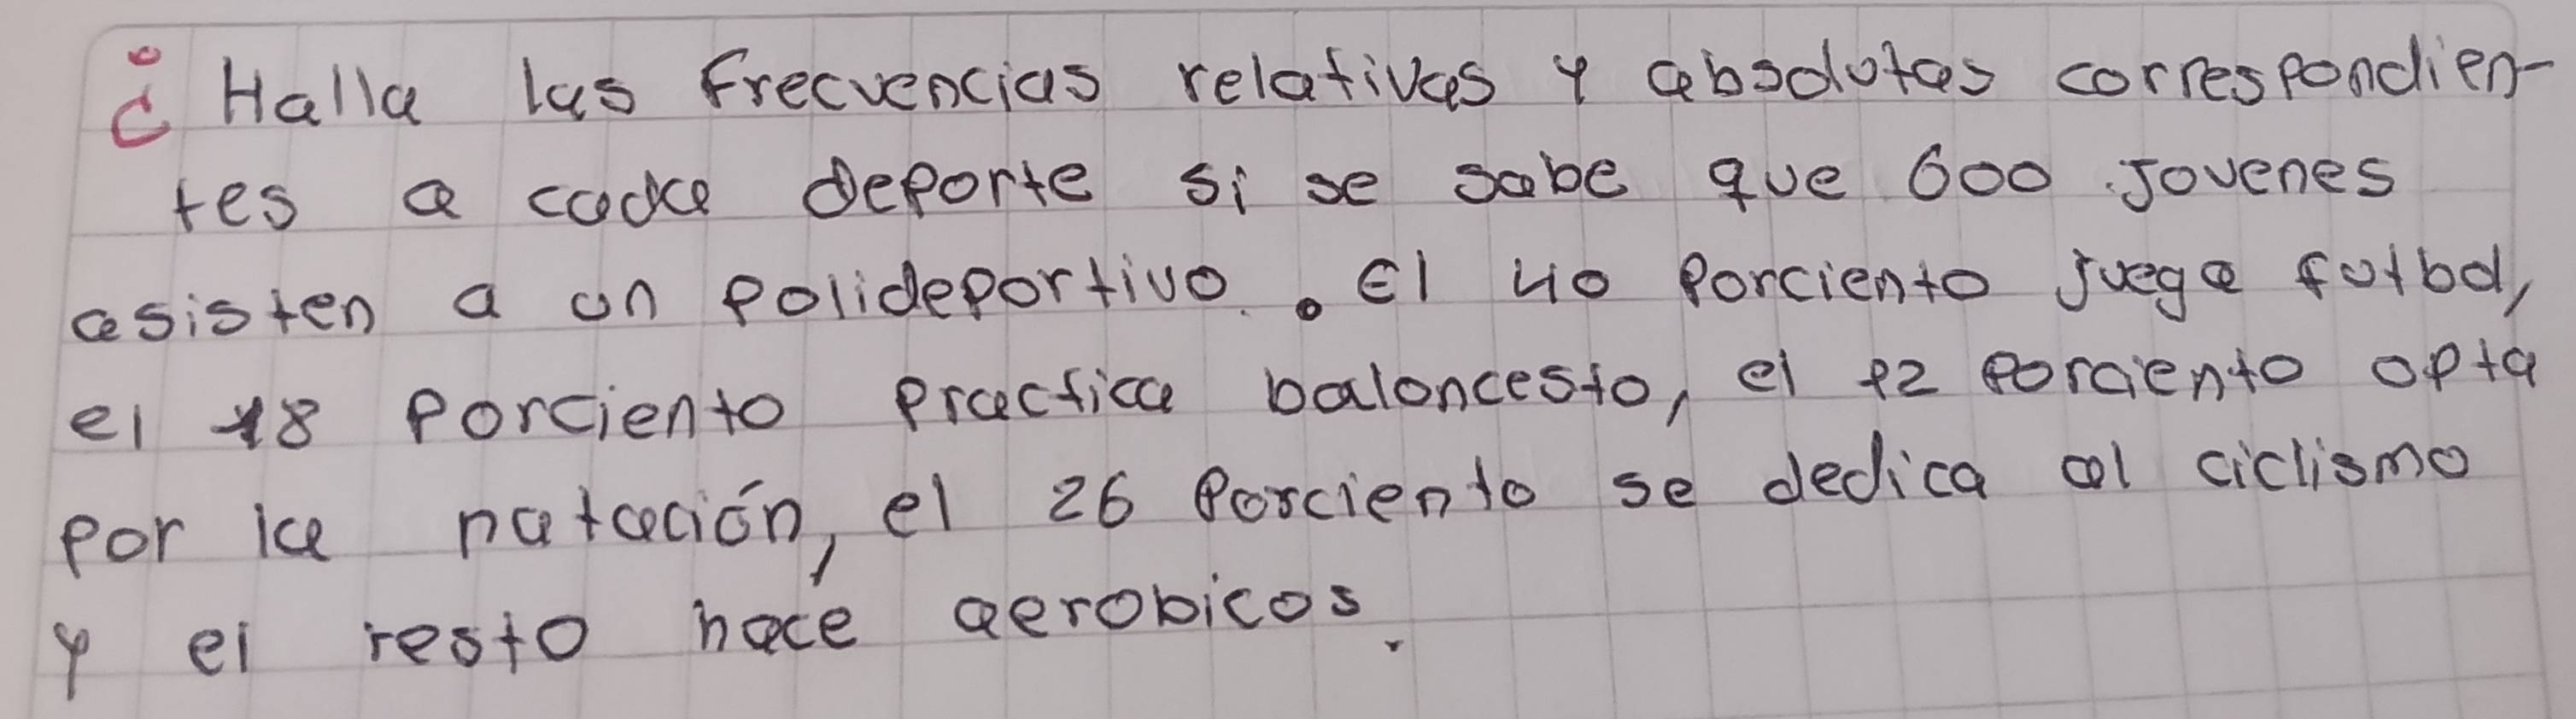 ¿ Halla las frecuencias relativas y absolutas correspondien-
tes a cada deporte si se sabe que 600 Jovenes
asisten a un polideportivo. El 40 porciento juega futbol,
el 18 porciento practica baloncesto, el 12 porciento opta
por la natación, el 26 porciento se dedica al ciclismo
y el resto hace aerobicos.